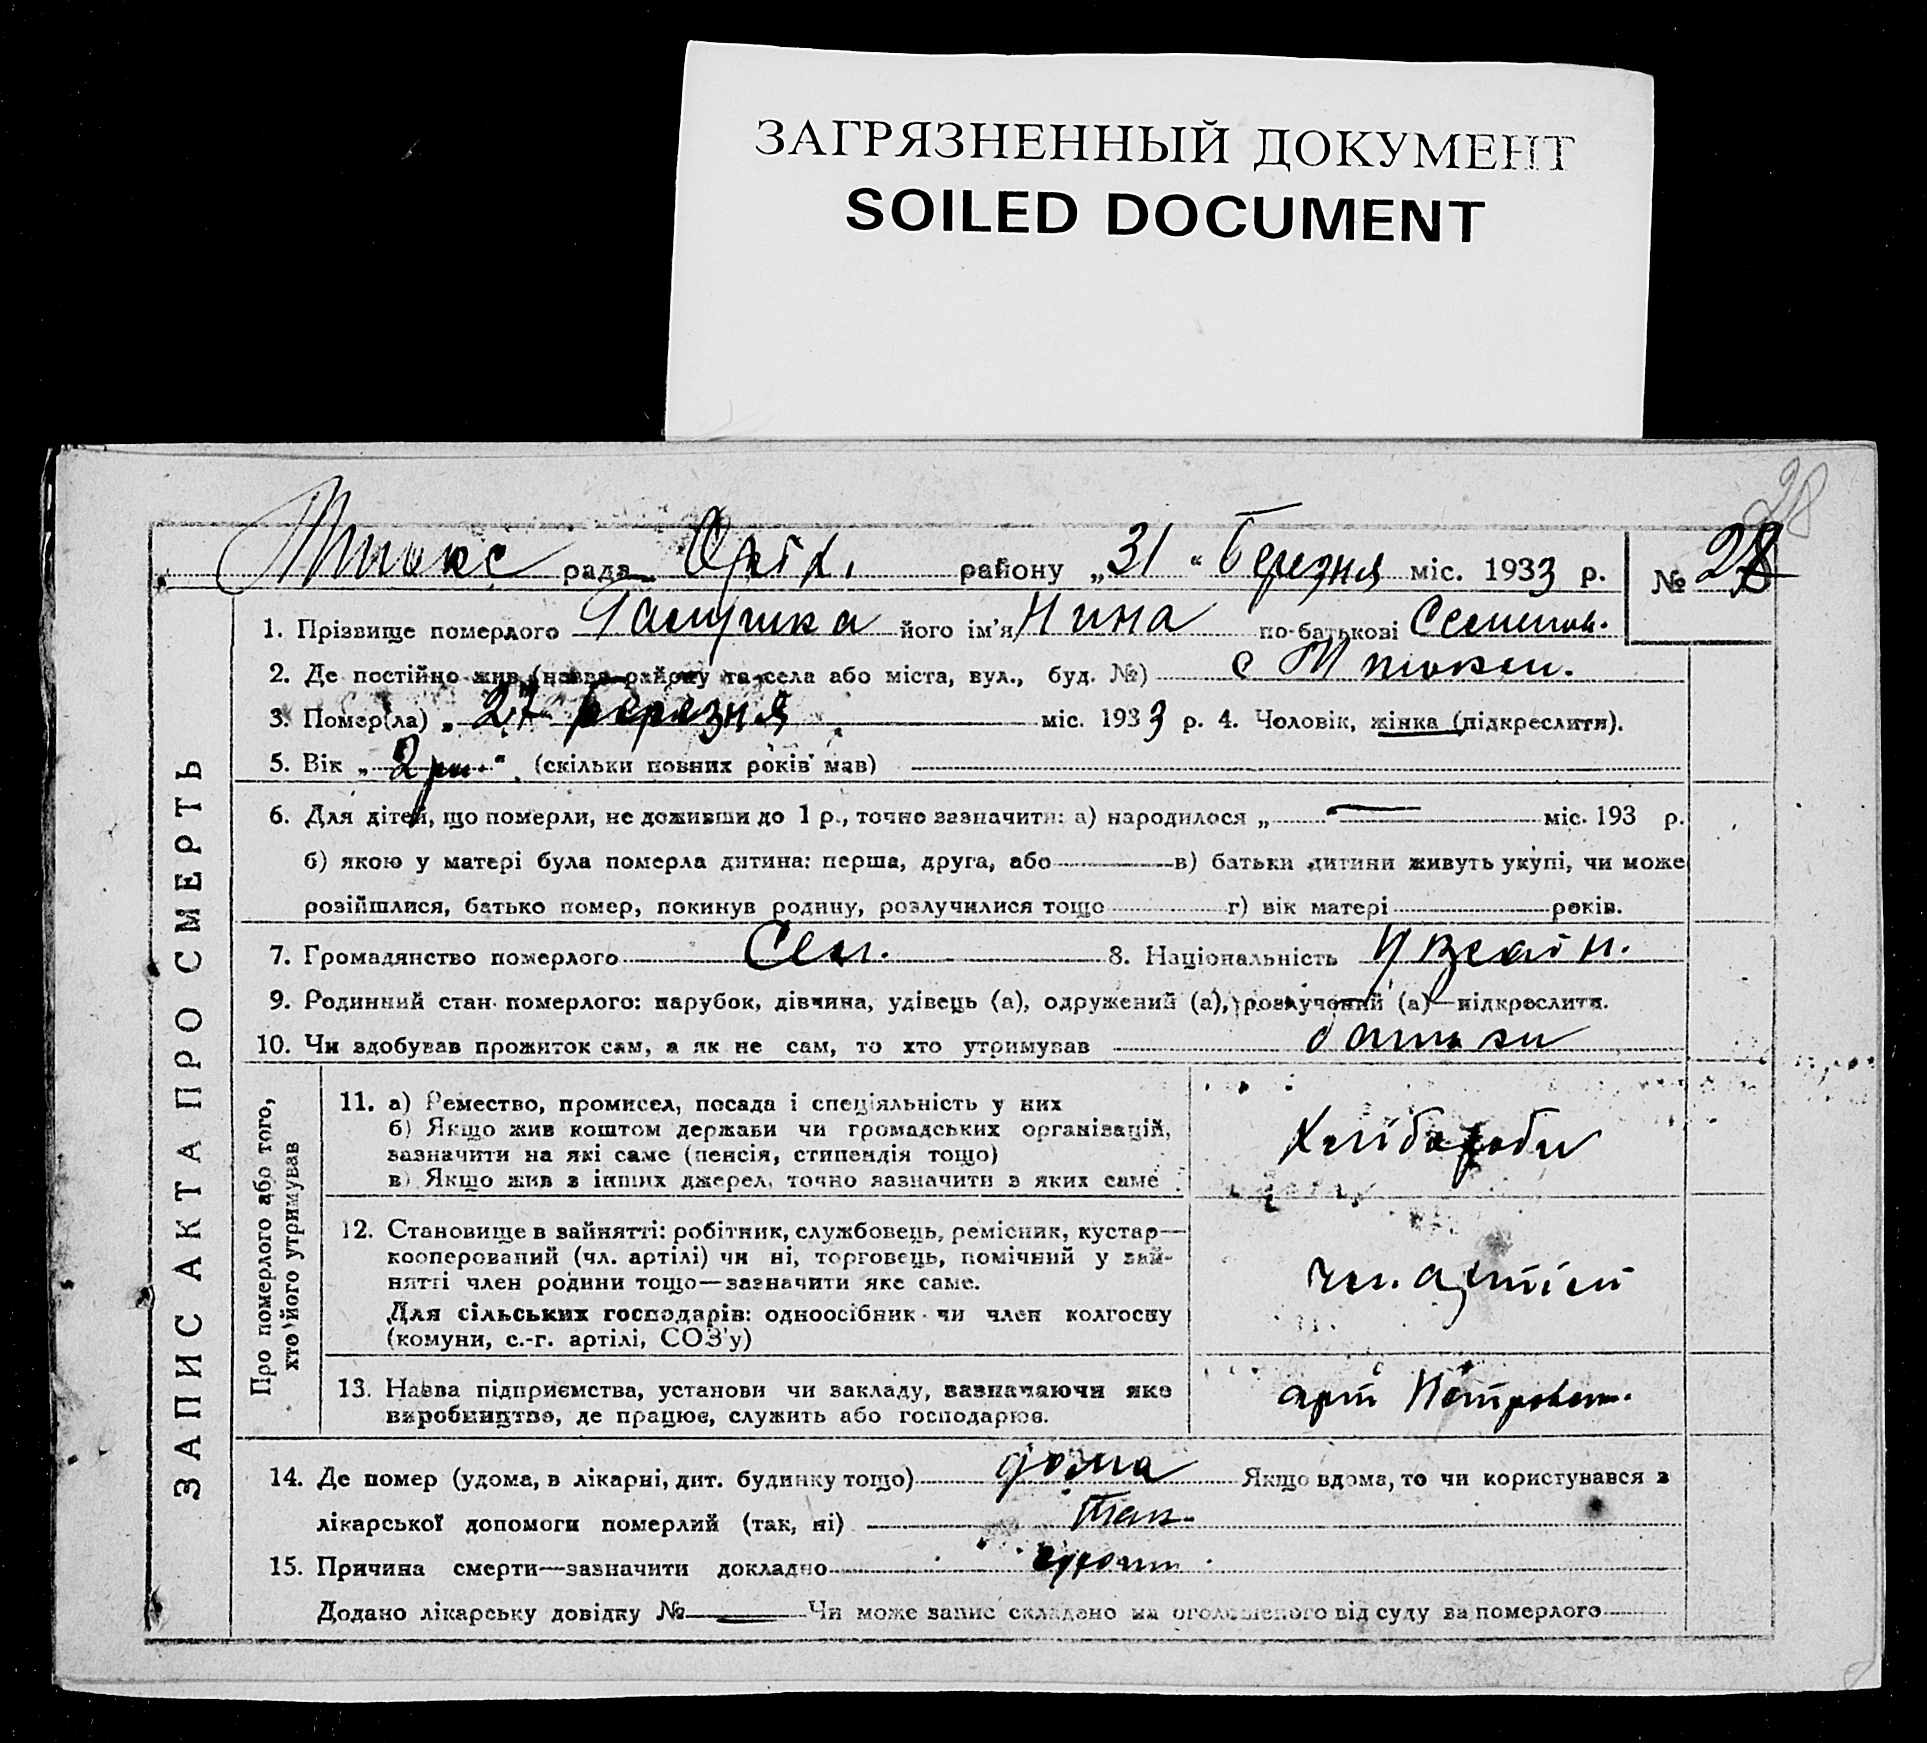 ЗАГРЯЗНЕННЫЙ ДОКУМЕНТ
SOILED DOCUMENT
28
рада Оріх. району „31“ Березня міс. 1933 р. № 28
ЗАПИС АКТА ПРО СМЕРТЬ
1. Прізвище померлого його ім'я Нина по-батькові Семенов.
2. Де постійно жив (назва району та села або міста, вул., буд. №) с
3. Помер(ла) „27 березня міс. 1933 р. 4. Чоловік, жінка (підкреслити).
5. Вік „2 рок.“ (скільки повних років мав)
6. Для дітей, що померли, не доживши до 1 р., точно зазначити: а) народилося „ — міс. 193 р.
б) якою у матері була померла дитина: перша, друга, або в) батьки дитини живуть укупі, чи може
розійшлися, батько помер, покинув родину, розлучилися тощо г) вік матері років.
7. Громадянство померлого Сел. 8. Національність Украін.
9. Родинний стан померлого: парубок, дівчина, удівець (а), одружений (а), розлучений (а)—підкреслити.
10. Чи здобував прожиток сам, а як не сам, то хто утримував батьки
Про померлого або того,
хто його утримував
11. а) Ремество, промисел, посада і спеціяльність у них
б) Якщо жив коштом держави чи громадських організацій,
зазначити на які саме (пенсія, стипендія тощо)
в) Якщо жив з інших джерел, точно зазначити з яких саме
Хлібороби
12. Становище в зайнятті: робітник, службовець, ремісник, кустар—
кооперований (чл. артілі) чи ні, торговець, помічний у зай-
нятті член родини тощо—зазначити яке саме.
Для сільських господарів: одноосібник чи член колгоспу
(комуни, с.-г. артілі, СОЗ'у)
чл. артілі
13. Назва підприємства, установи чи закладу, зазначаючи яке
виробництво, де працює, служить або господарює.
арт Петровськ.
14. Де помер (удома, в лікарні, дит. будинку тощо) дома Якщо вдома, то чи користувався з
лікарської допомоги померлий (так, ні) Так.
15. Причина смерти—зазначити докладно
Додано лікарську довідку № — Чи може запис складено на оголошеного від суду за померлого